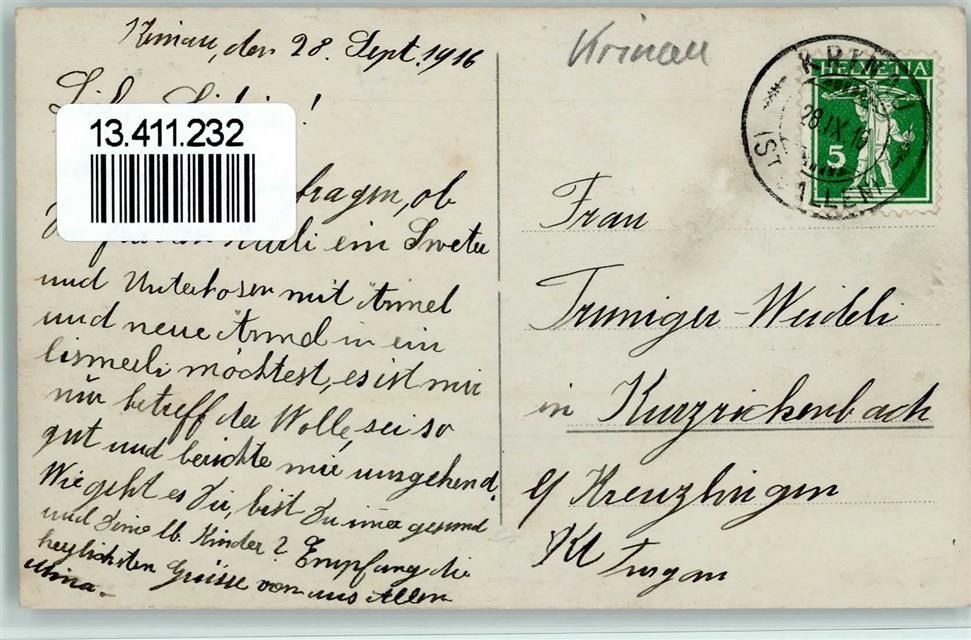 Krinau, den 28. Sept. 1916
13.411.232
fragen, ob
Karli ein Sweter
und Unterhosen mit Ärmel
und neue Ärmel in ein
lismerli möchtest, es ist mir
nur betreff der Wolle, sei so
gut und berichte mir umgehend.
Wie geht es Dir, bist Du imer gesund
und Deine lb. Kinder? Empfang die
herzlichsten Grüsse von uns Allen
Mina.
Krinau
KRINAU
28.IX.16
(ST. GALLEN)
HELVETIA
5
Frau
Truniger-Weideli
in Kurzrickenbach
b/ Kreuzlingen
Kt Turgau